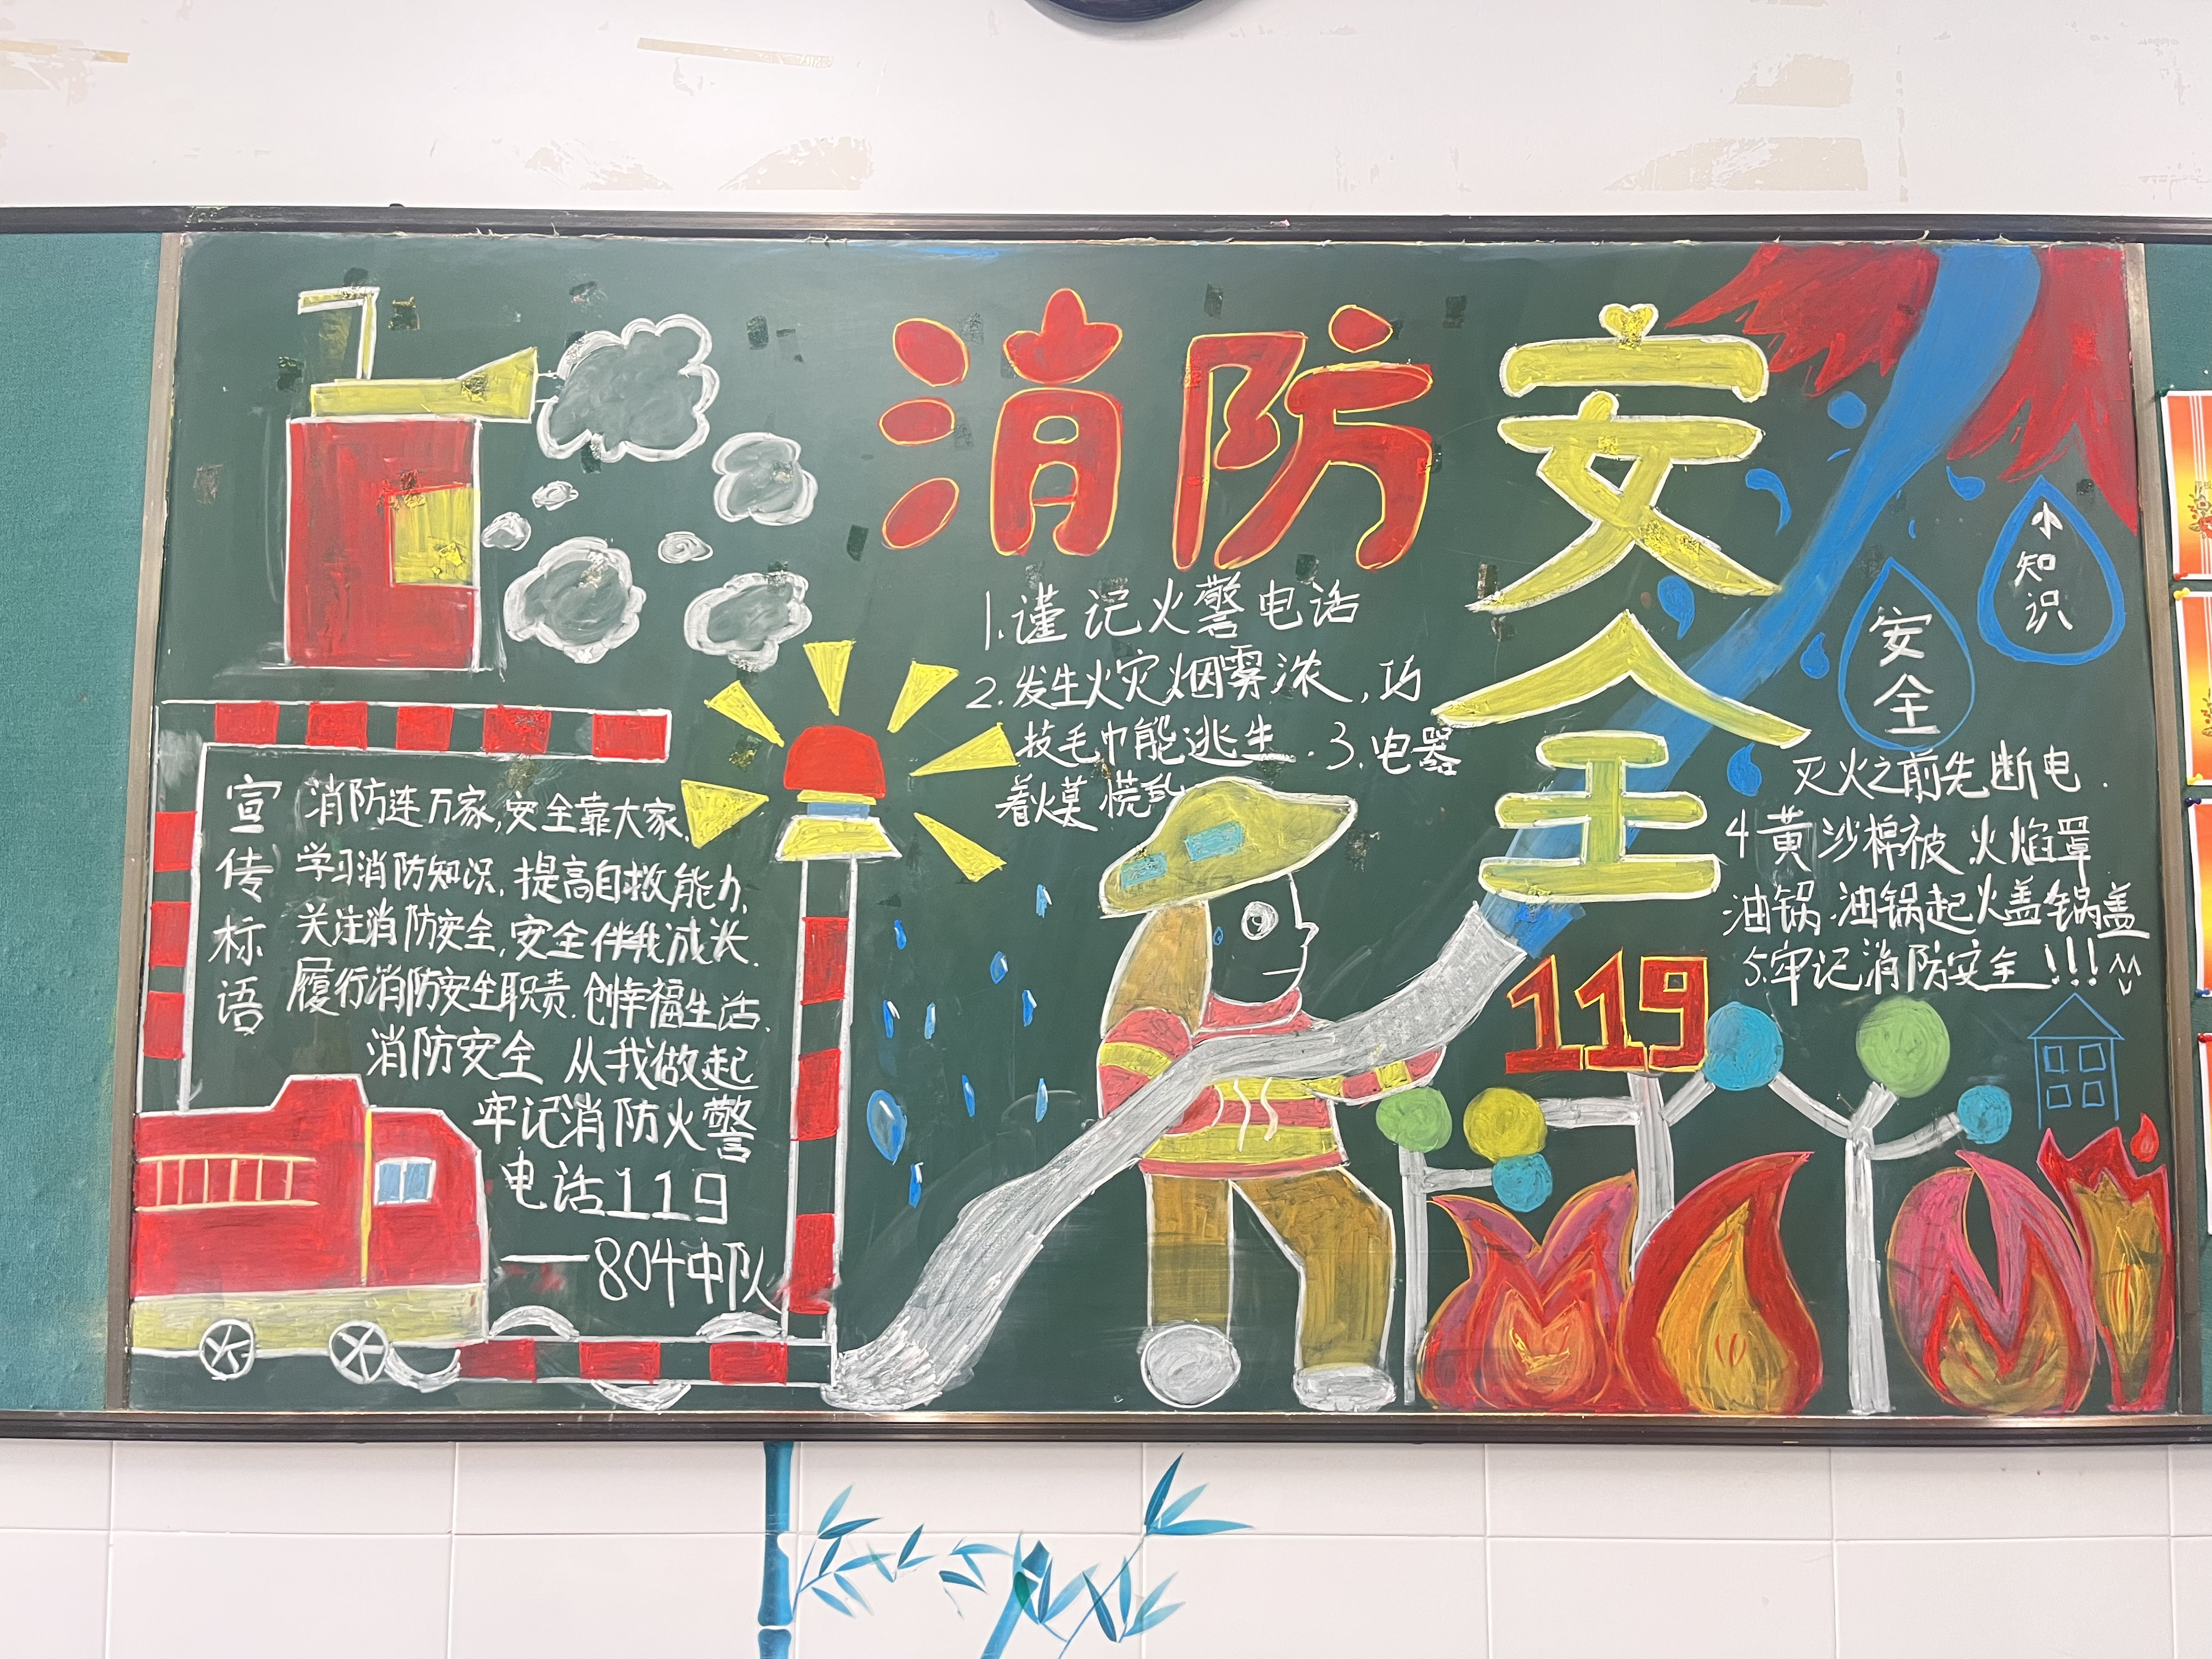 消防安全
1.谨记火警电话
2.发生火灾烟雾浓,巧
技毛巾能逃生.3.电器
着火莫慌乱
安全
小知识
灭火之前先断电.
4黄沙棉被火焰罩
油锅.油锅起火盖锅盖
5.牢记消防安全!!!
119
宣传标语
消防连万家,安全靠大家.
学习消防知识,提高自救能力.
关注消防安全,安全伴我成长.
履行消防安全职责.创幸福生活.
消防安全 从我做起
牢记消防火警
电话119
——804中队